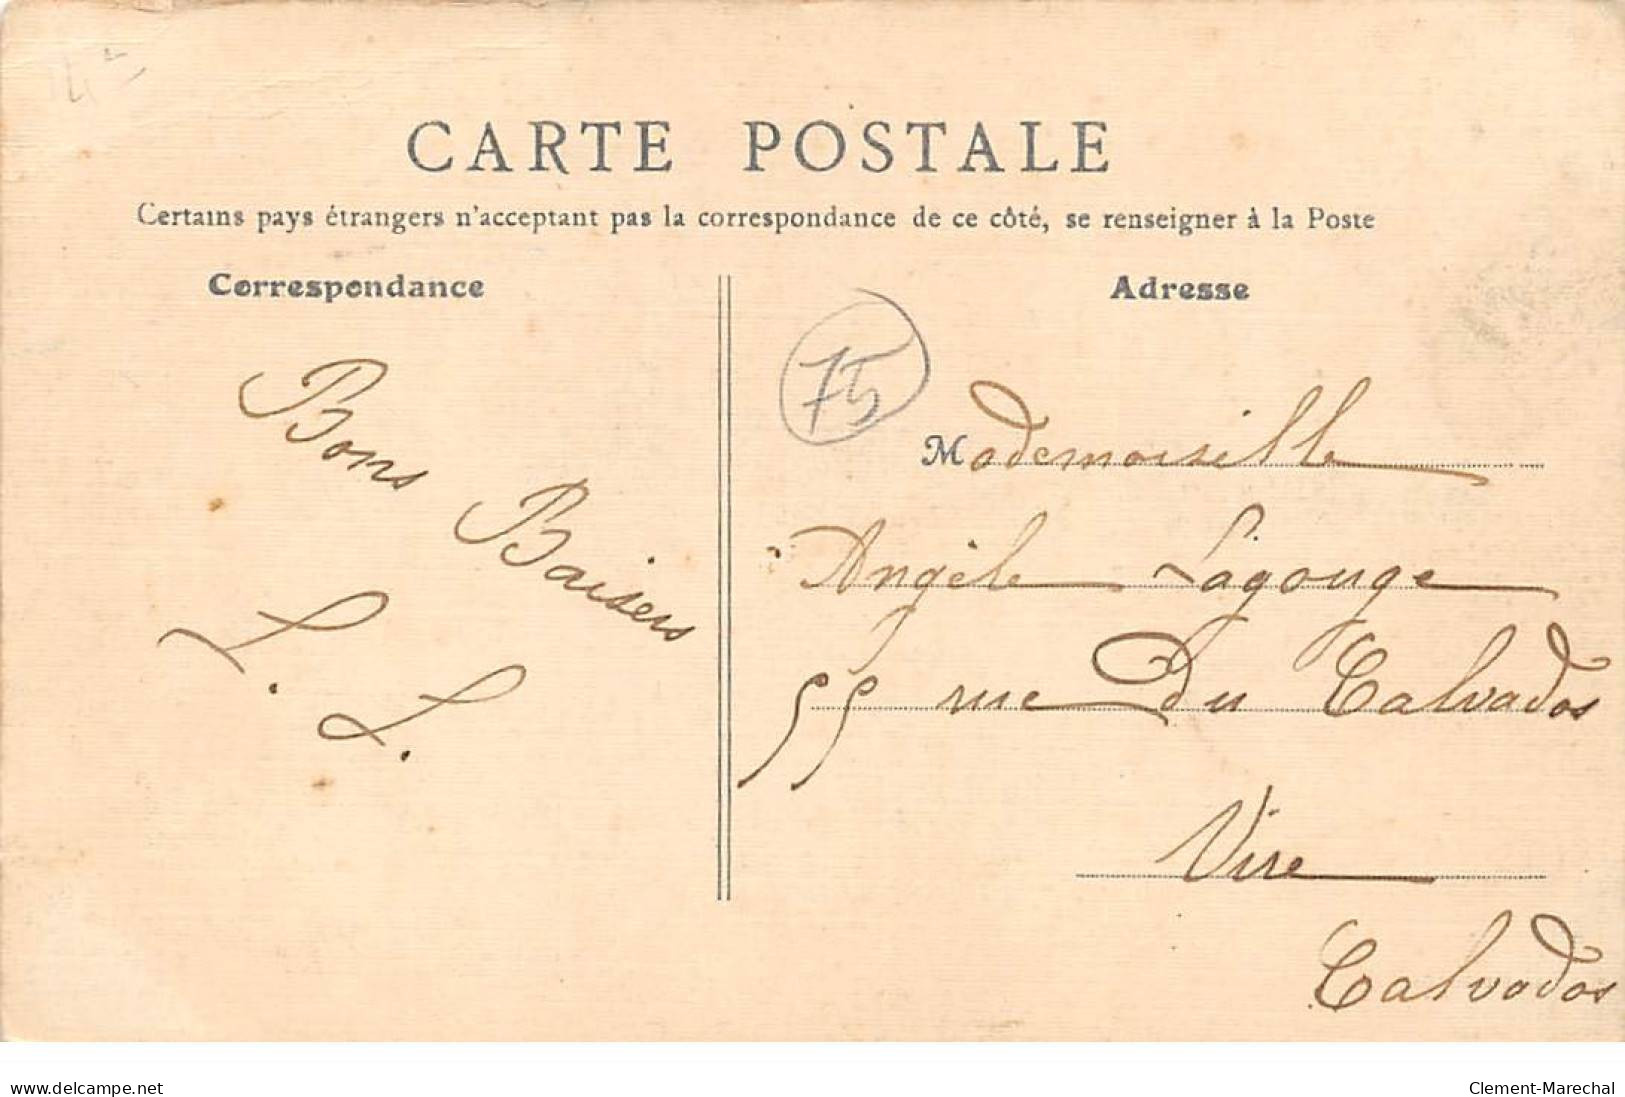 CARTE POSTALE
Certains pays étrangers n'acceptant pas la correspondance de ce côté, se renseigner à la Poste
Correspondance
Bons Baisers
L. L.
Adresse
75
Mademoiselle
Angèle Lagouge
55 rue du Calvados
Vire
Calvados
www.delcampe.net
Clement-Marechal